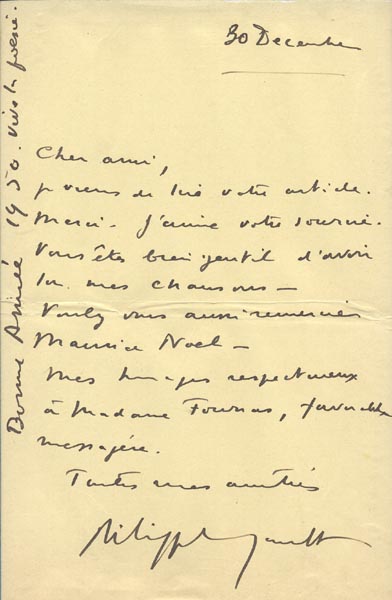 30 Decembre
Cher ami,
je viens de lire votre article.
Merci. J'aime votre sourire.
Vous êtes bien gentil d'avoir
lu mes chansons —
Voulez vous aussi remercier
Maurice Noel —
Mes hommages respectueux
à Madame favorable
messagère.
Toutes mes amitiés
Philippe
Bonne Année 1950. Vive la poésie.